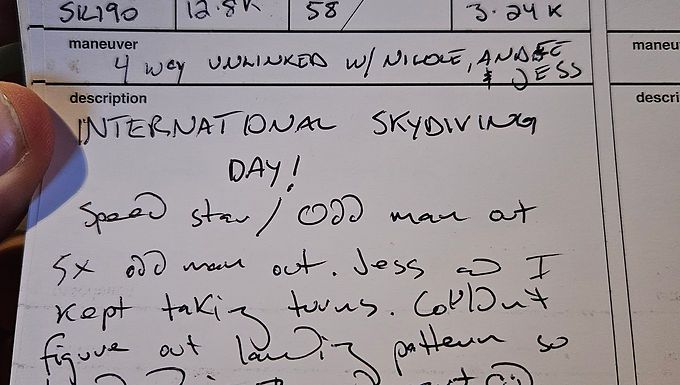 SK190 12.8K 58 3.24K
maneuver
maneu
4 way UNLINKED W/ NICOLE, ANDEE
& JESS
description
descri
INTERNATIONAL SKYDIVING
DAY!
Speed star / Odd man out
5x odd man out. Jess and I
kept taking turns. Couldn't
figure out landing pattern so